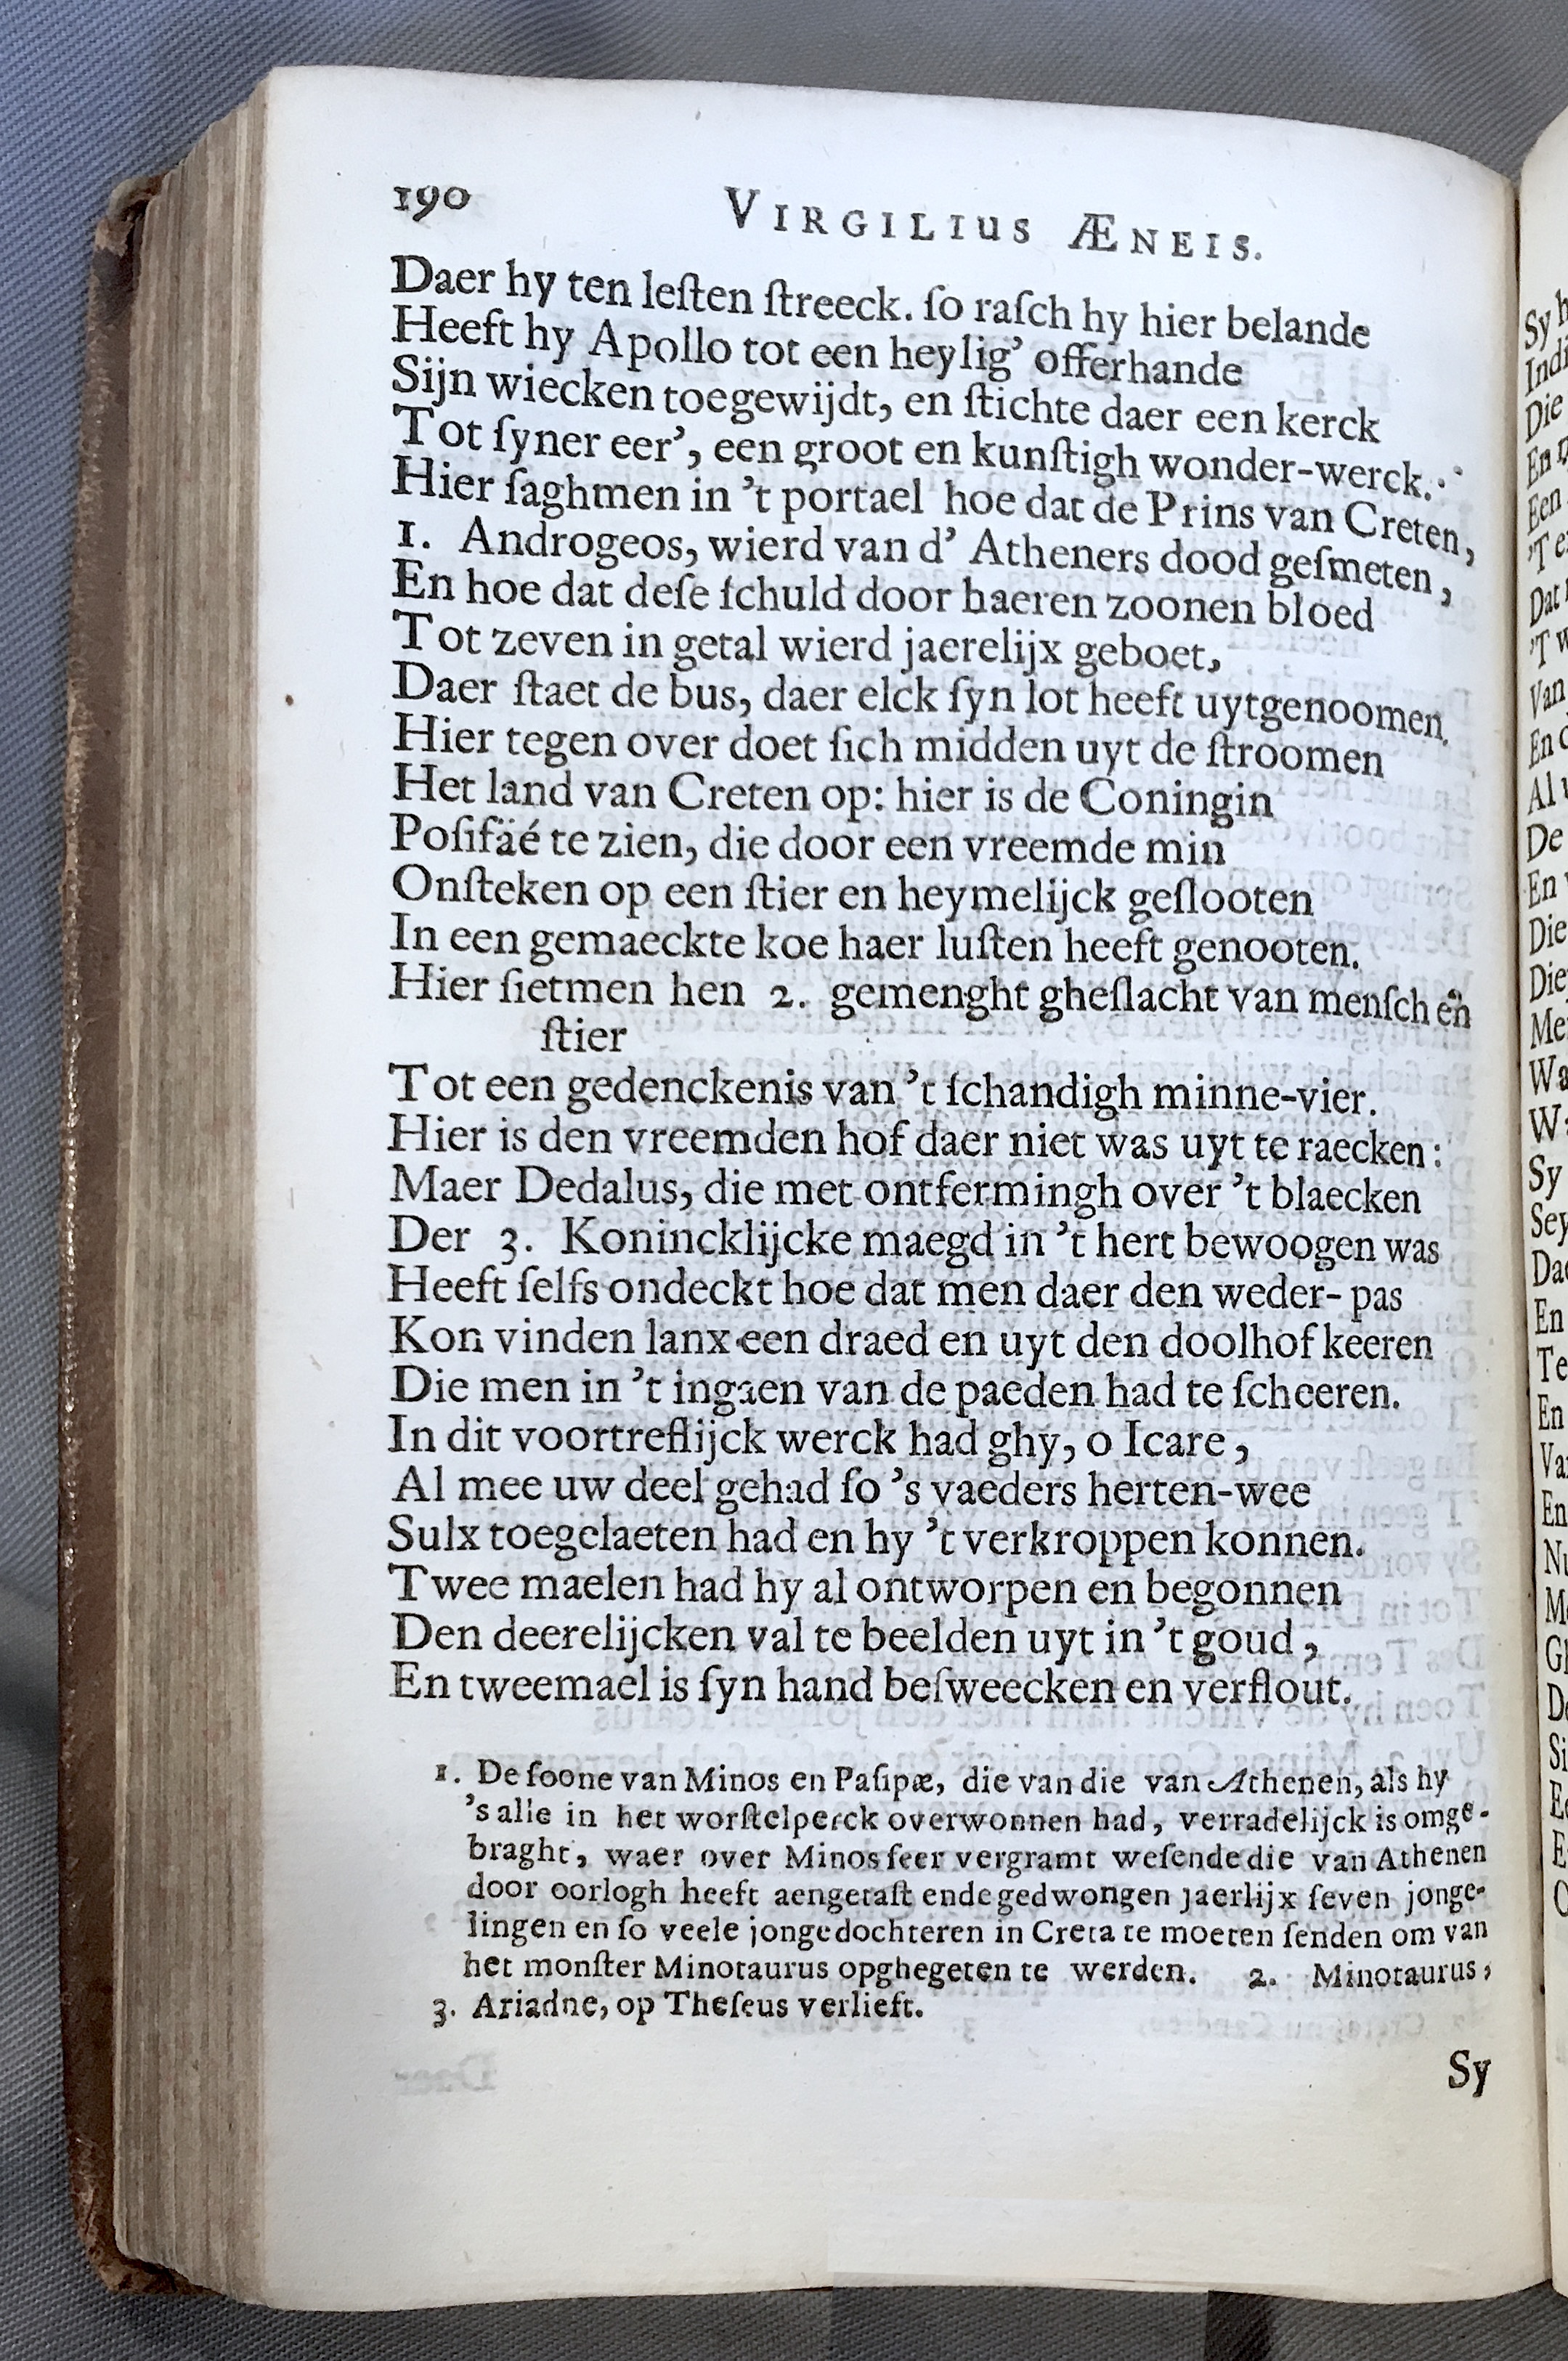 190 VIRGILIUS ÆNEIS.
Daer hy ten leſten ſtreeck. ſo raſch hy hier belande
Heeft hy Apollo tot een heylig' offerhande
Sijn wiecken toegewijdt, en ſtichte daer een kerck
Tot ſyner eer', een groot en kunſtigh wonder-werck.
Hier ſaghmen in 't portael hoe dat de Prins van Creten,
1. Androgeos, wierd van d' Atheners dood geſmeten,
En hoe dat deſe ſchuld door haeren zoonen bloed
Tot zeven in getal wierd jaerelijx geboet,
Daer ſtaet de bus, daer elck ſyn lot heeft uytgenoomen.
Hier tegen over doet ſich midden uyt de ſtroomen
Het land van Creten op: hier is de Coningin
Poſifäé te zien, die door een vreemde min
Onſteken op een ſtier en heymelijck geſlooten
In een gemaeckte koe haer luſten heeft genooten.
Hier ſietmen hen 2. gemenght gheſlacht van menſch en
ſtier
Tot een gedenckenis van 't ſchandigh minne-vier.
Hier is den vreemden hof daer niet was uyt te raecken:
Maer Dedalus, die met ontfermingh over 't blaecken
Der 3. Konincklijcke maegd in 't hert bewoogen was
Heeft ſelfs ondeckt hoe dat men daer den weder-pas
Kon vinden lanx een draed en uyt den doolhof keeren
Die men in 't ingaen van de paeden had te ſcheeren.
In dit voortreflijck werck had ghy, o Icare,
Al mee uw deel gehad ſo 's vaeders herten-wee
Sulx toegelaeten had en hy 't verkroppen konnen.
Twee maelen had hy al ontworpen en begonnen
Den deerelijcken val te beelden uyt in 't goud,
En tweemael is ſyn hand beſweecken en verflout.
1. De ſoone van Minos en Paſipæ, die van die van Athenen, als hy
's alle in het worſtelperck overwonnen had, verradelijck is omge-
braght, waer over Minos ſeer vergramt weſende die van Athenen
door oorlogh heeft aengetaſt ende gedwongen jaerlijx ſeven jonge-
lingen en ſo veele jonge dochteren in Creta te moeten ſenden om van
het monſter Minotaurus opghegeten te werden. 2. Minotaurus,
3. Ariadne, op Theſeus verlieft.
Sy